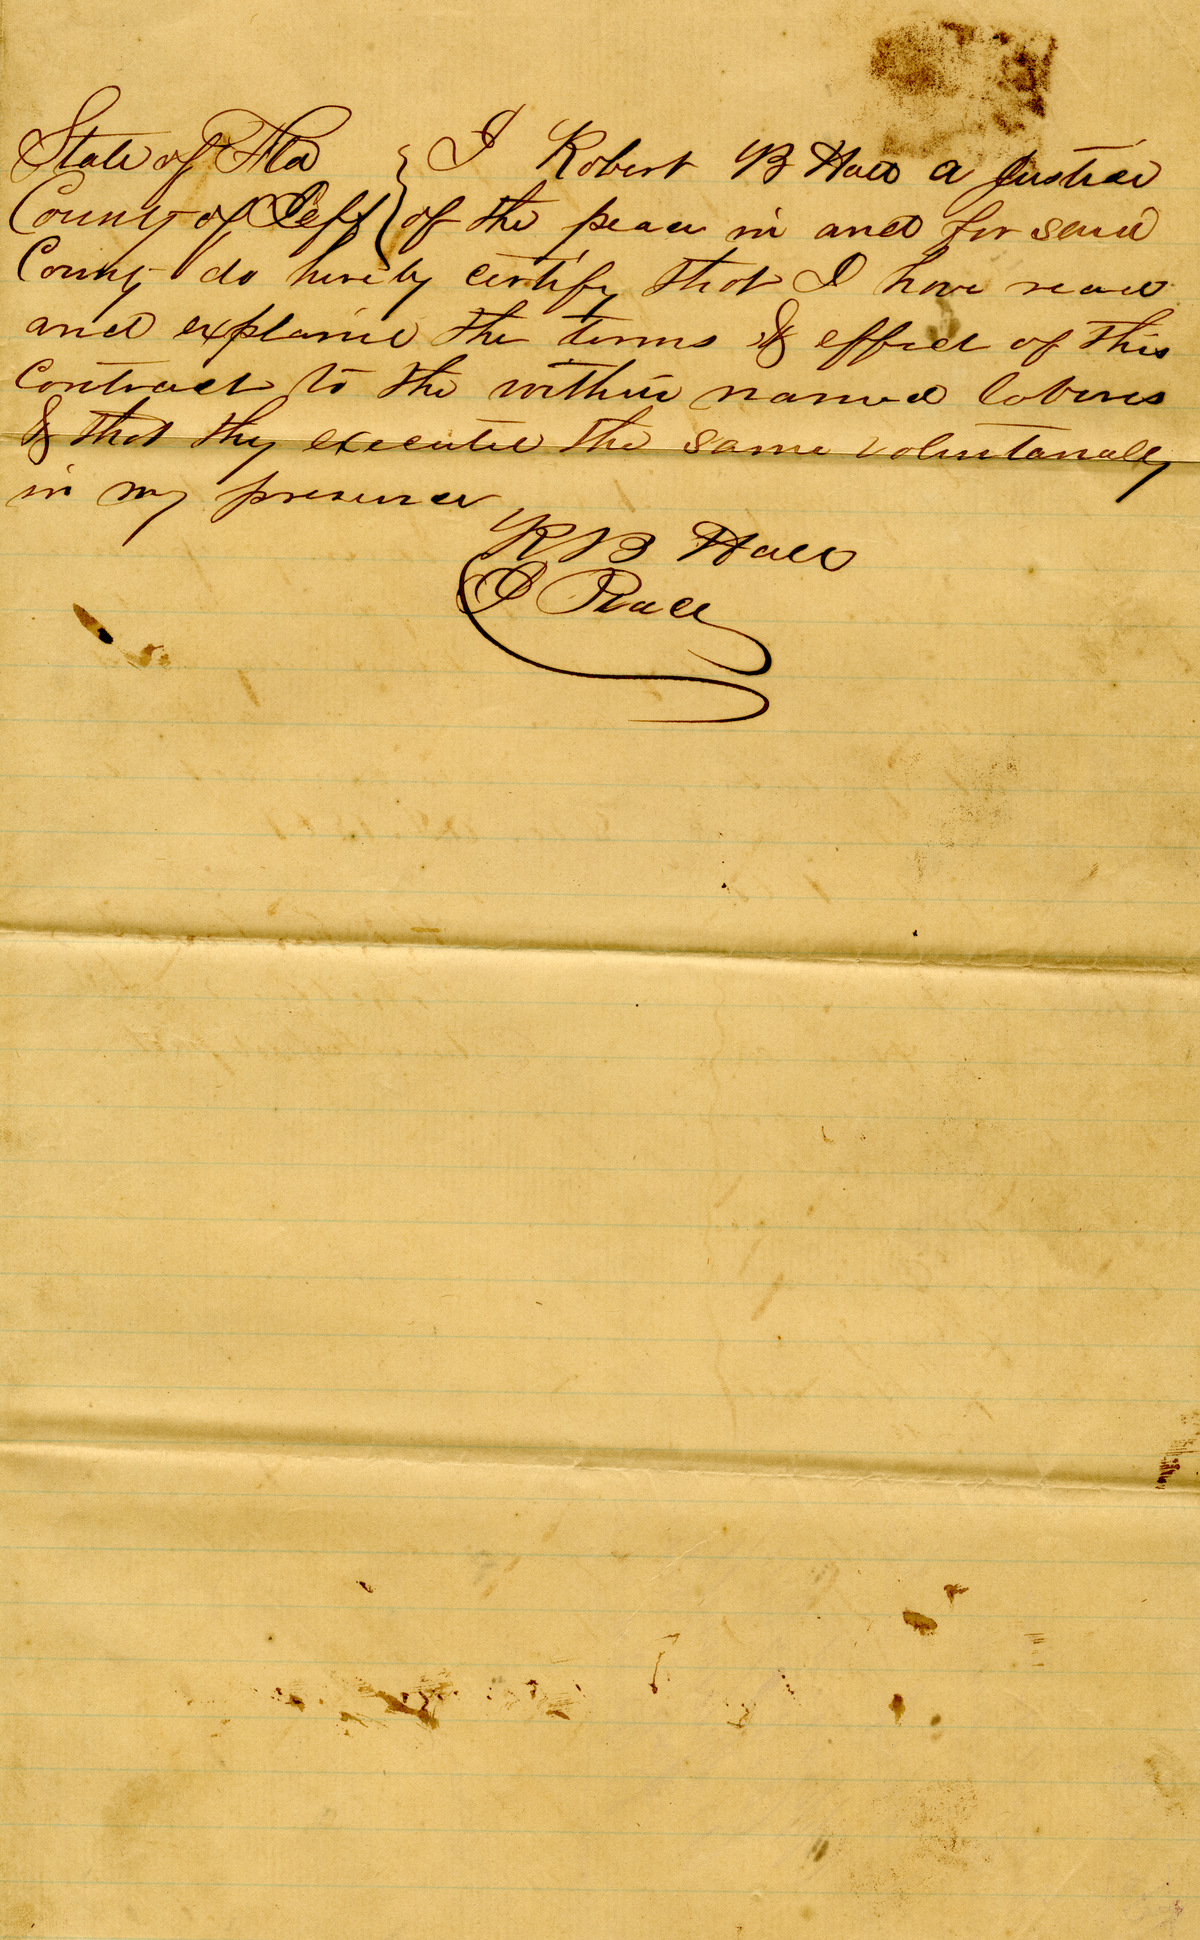 State of Fla } I Robert B Hall a Justice
County of Jeff } of the peace in and for said
County do hereby certify that I have read
and explained the terms & effect of this
Contract to the within named laborers
& that they executed the same voluntarally
in my presence
R B Hall
J Peace